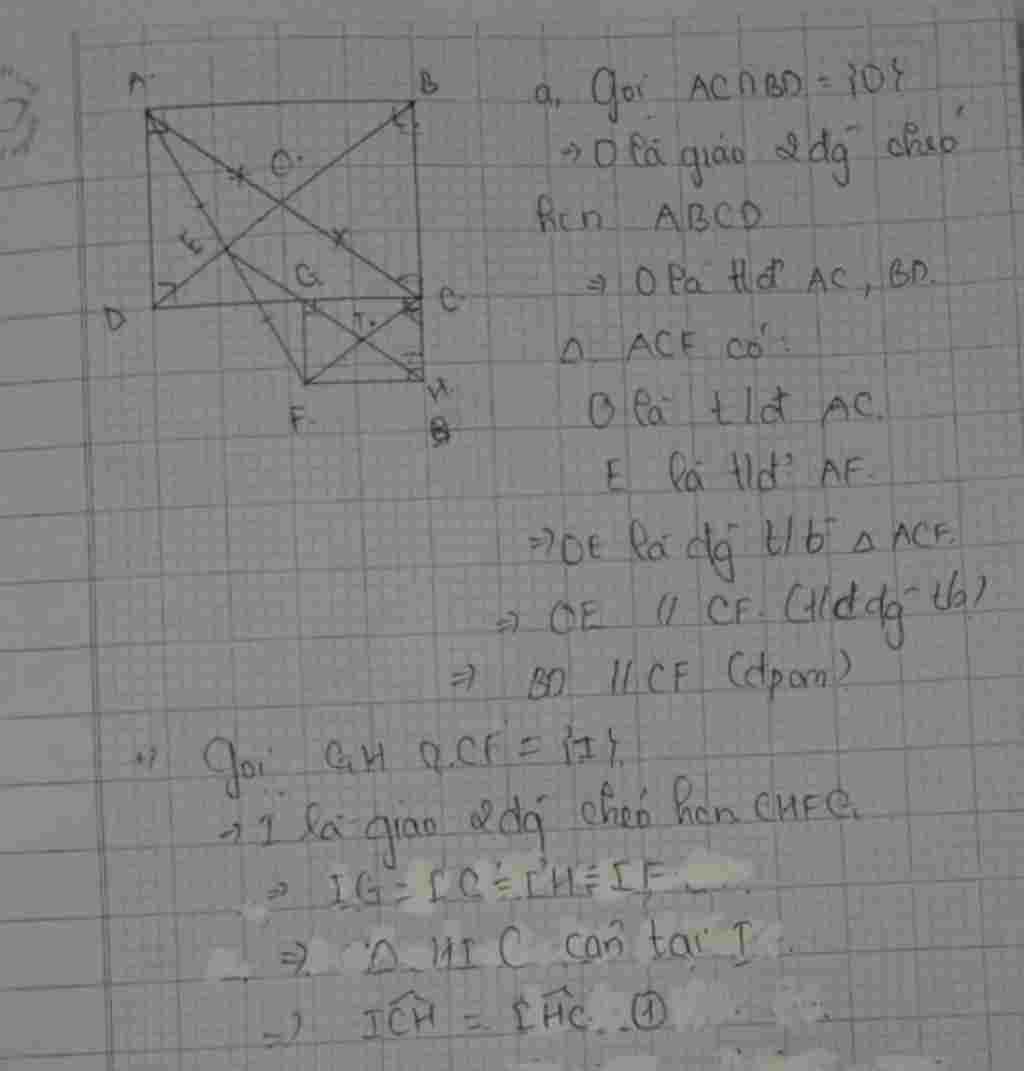 A
B
O
E
G
D
C
I
F
H
a, Gọi AC∩BD = {O}
→ O là giao 2 đg chéo
hcn ABCD
⇒ O là t/đ AC, BD.
Δ ACF có:
O là t/đ AC.
E là t/đ AF.
⇒ OE là đg t/b Δ ACF.
⇒ OE // CF. (t/c đg tb)
⇒ BD // CF (đpcm)
+) Gọi GH ∩ CF = {I}.
→ I là giao 2 đg chéo hcn CHFG.
⇒ IG = IC = IH = IF
⇒ Δ HIC cân tại I.
⇒ IĈH = IĤC. ①